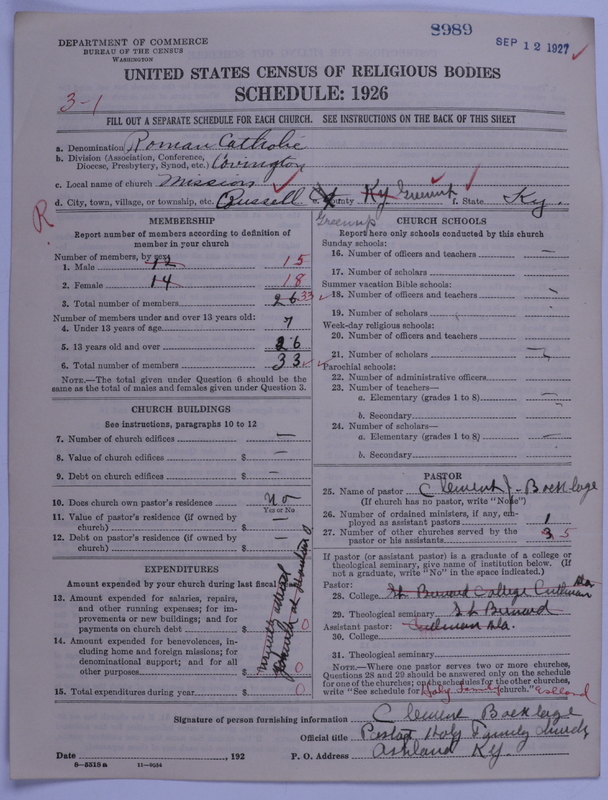 8989
SEP 12 1927
DEPARTMENT OF COMMERCE
BUREAU OF THE CENSUS
WASHINGTON
UNITED STATES CENSUS OF RELIGIOUS BODIES
SCHEDULE: 1926
3-1
FILL OUT A SEPARATE SCHEDULE FOR EACH CHURCH. SEE INSTRUCTIONS ON THE BACK OF THIS SHEET
a. Denomination Roman Catholic
b. Division (Association, Conference, Diocese, Presbytery, Synod, etc.) Covington
c. Local name of church Mission
d. City, town, village, or township, etc. Russell e. County Ky Greenup f. State Ky.
Greenup
R
MEMBERSHIP
Report number of members according to definition of
member in your church
Number of members, by sex:
1. Male 12 15
2. Female 14 18
3. Total number of members 26 33
Number of members under and over 13 years old:
4. Under 13 years of age 7
5. 13 years old and over 26
6. Total number of members 33
NOTE.—The total given under Question 6 should be the
same as the total of males and females given under Question 3.
CHURCH BUILDINGS
See instructions, paragraphs 10 to 12
7. Number of church edifices —
8. Value of church edifices $ —
9. Debt on church edifices $ —
10. Does church own pastor's residence no
Yes or No
11. Value of pastor's residence (if owned by
church) $ —
12. Debt on pastor's residence (if owned by
church) $ —
EXPENDITURES
Amount expended by your church during last fiscal
13. Amount expended for salaries, repairs,
and other running expenses; for im-
provements or new buildings; and for
payments on church debt $ 0
14. Amount expended for benevolences, in-
cluding home and foreign missions; for
denominational support; and for all
other purposes $ 0
15. Total expenditures during year $ 0
CHURCH SCHOOLS
Report here only schools conducted by this church
Sunday schools:
16. Number of officers and teachers —
17. Number of scholars
Summer vacation Bible schools:
18. Number of officers and teachers —
19. Number of scholars
Week-day religious schools:
20. Number of officers and teachers
21. Number of scholars —
Parochial schools:
22. Number of administrative officers
23. Number of teachers—
a. Elementary (grades 1 to 8) —
b. Secondary
24. Number of scholars—
a. Elementary (grades 1 to 8) —
b. Secondary
PASTOR
25. Name of pastor Clement J. Boeklage
(If church has no pastor, write "None")
26. Number of ordained ministers, if any, em-
ployed as assistant pastors 1
27. Number of other churches served by the
pastor or his assistants 3 5
If pastor (or assistant pastor) is a graduate of a college or
theological seminary, give name of institution below. (If
not a graduate, write "No" in the space indicated.)
Pastor:
28. College St Bernard College Cullman Ala
29. Theological seminary St Bernard
Assistant pastor: Cullman Ala.
30. College
31. Theological seminary
NOTE.—Where one pastor serves two or more churches,
Questions 28 and 29 should be answered only on the schedule
for one of the churches; on the schedules for the other churches,
write "See schedule for Holy Family church."
Signature of person furnishing information Clement Boeklage
Official title Pastor Holy Family Church
Date , 192 P. O. Address Ashland Ky.
8—5518 a 11—9024